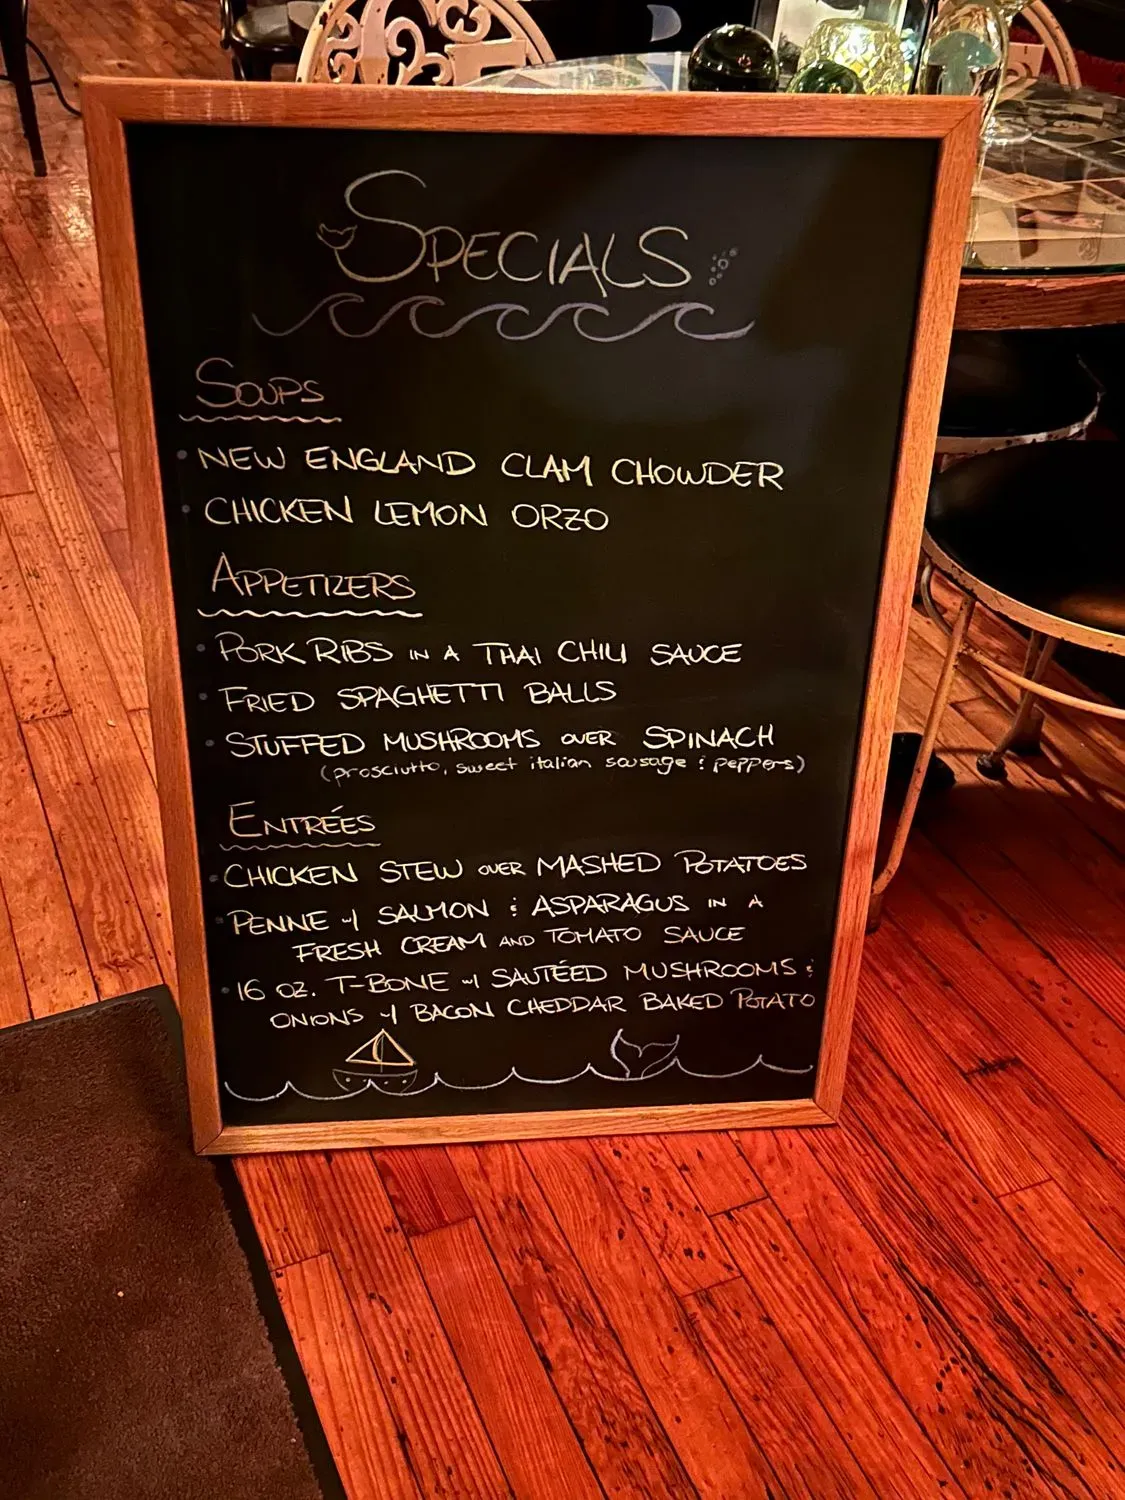 SPECIALS
SOUPS
• NEW ENGLAND CLAM CHOWDER
• CHICKEN LEMON ORZO
APPETIZERS
• PORK RIBS IN A THAI CHILI SAUCE
• FRIED SPAGHETTI BALLS
• STUFFED MUSHROOMS OVER SPINACH
(prosciutto, sweet italian sausage & peppers)
ENTRÉES
• CHICKEN STEW OVER MASHED POTATOES
• PENNE w/ SALMON & ASPARAGUS IN A
FRESH CREAM AND TOMATO SAUCE
• 16 OZ. T-BONE w/ SAUTÉED MUSHROOMS &
ONIONS w/ BACON CHEDDAR BAKED POTATO